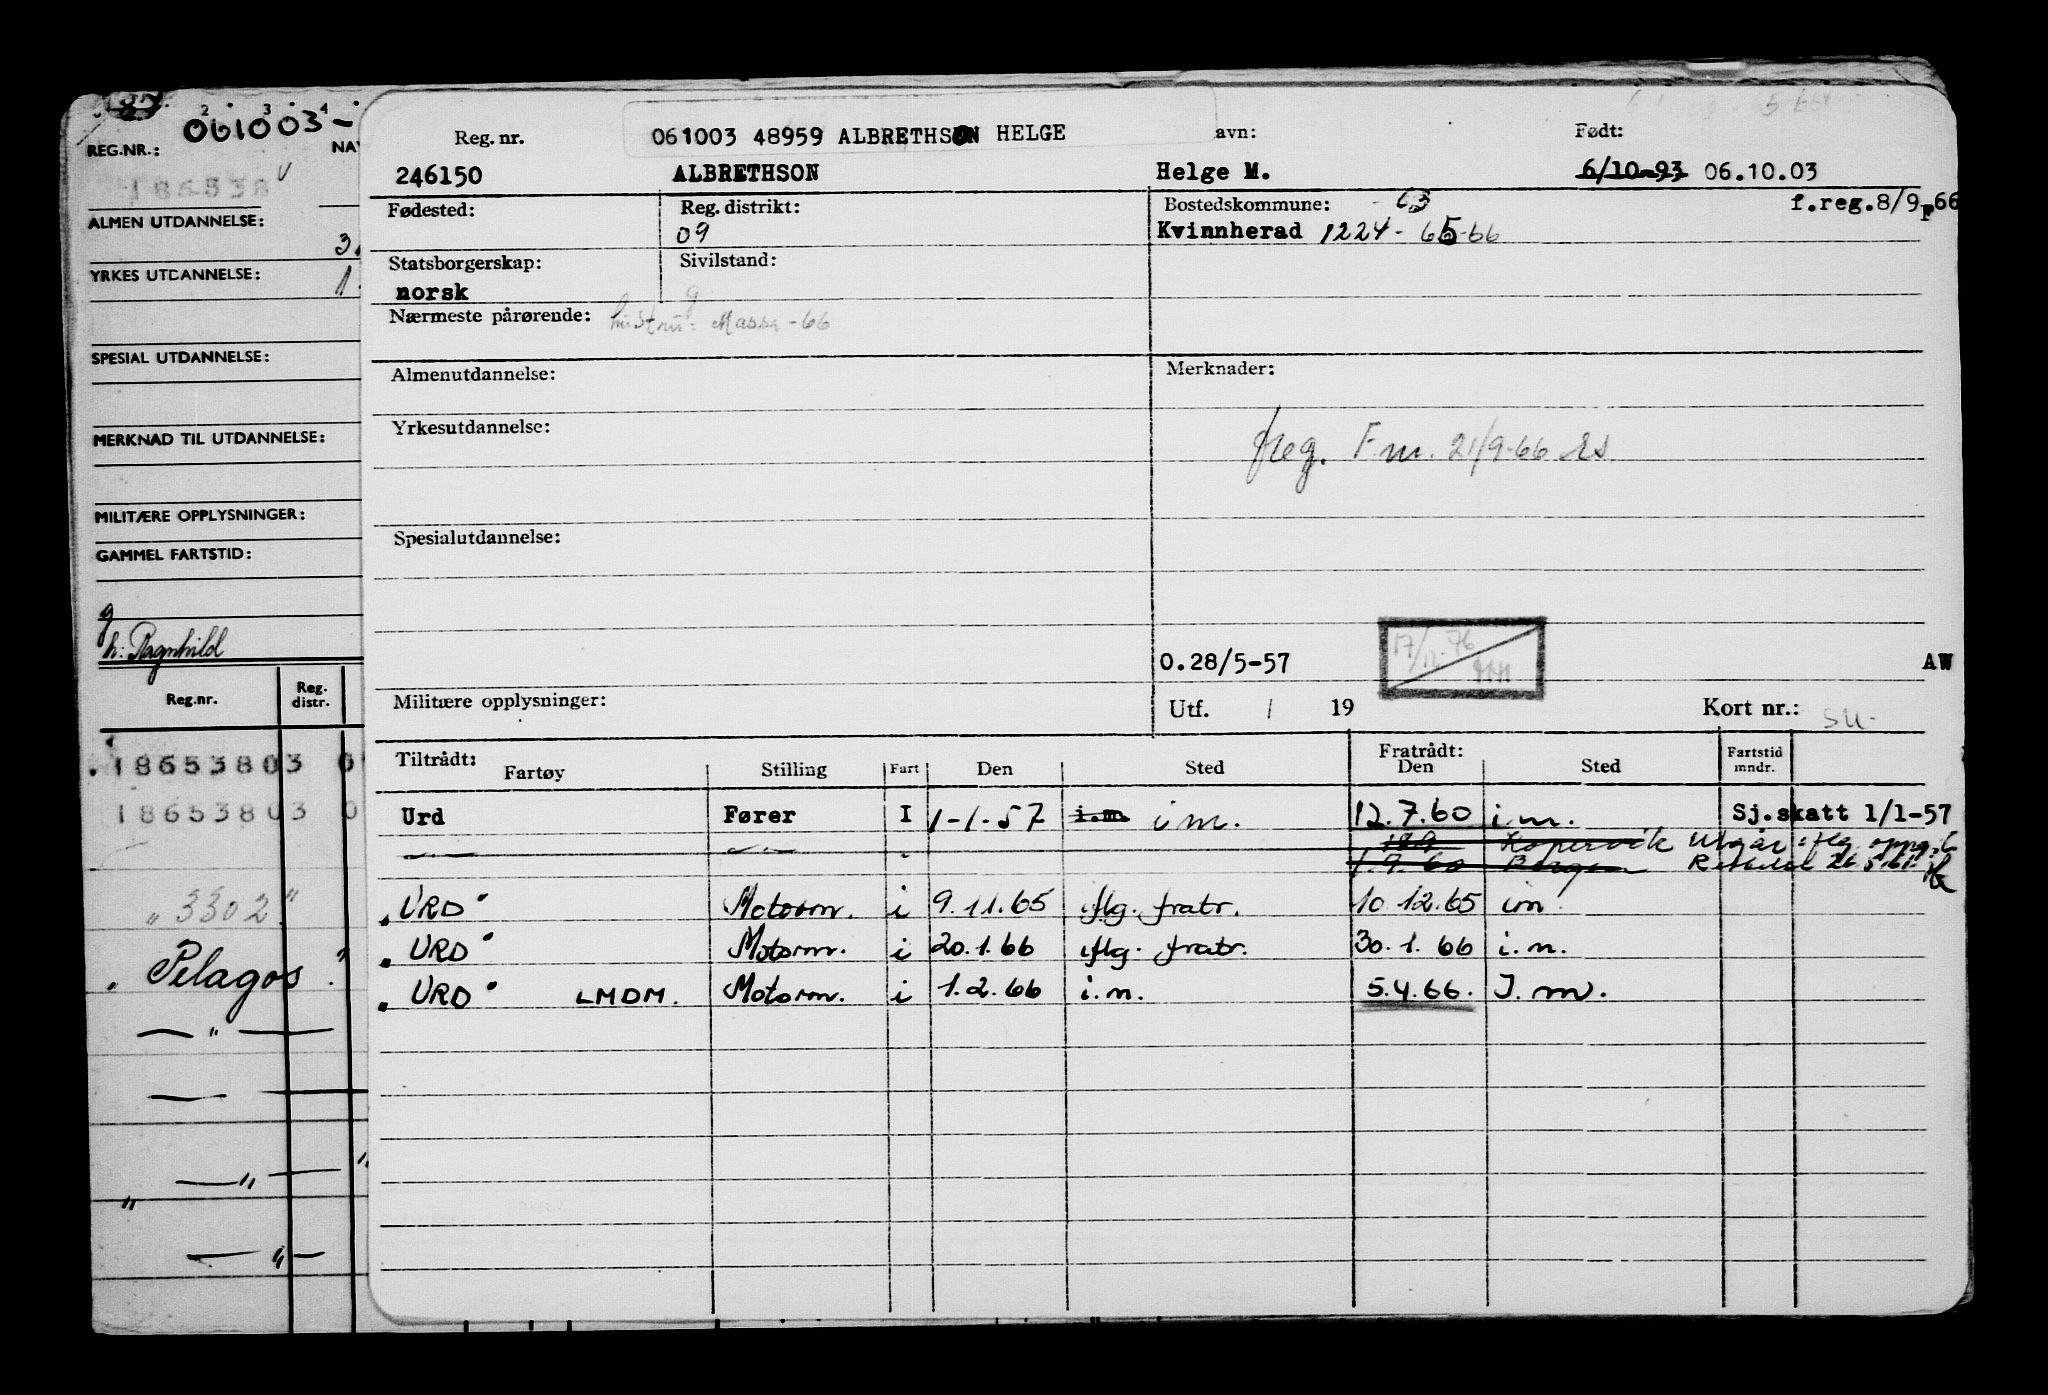 061003-
REG.NR.:
NAV
186538
ALMEN UTDANNELSE:
3.
YRKES UTDANNELSE:
1
SPESIAL UTDANNELSE:
MERKNAD TIL UTDANNELSE:
MILITÆRE OPPLYSNINGER:
GAMMEL FARTSTID:
g
h: Ragnhild
Reg.nr. Reg. distr.
18653803 0
18653803 0
"3302"
"Pelagos"
— " —
— —
— " —
"
— " —
061003 48959 ALBRETHSON HELGE
Reg. nr. avn: Født:
246150 ALBRETHSON Helge M. 6/10-93 06.10.03
Fødested: Reg. distrikt: Bostedskommune: - 63 f.reg.8/9-66
09 Kvinnherad 1224 - 65-66
Statsborgerskap: Sivilstand:
norsk g
Nærmeste pårørende: hustru: - 66
Almenutdannelse: Merknader:
Yrkesutdannelse:
freg. F.m. 21/9-66
Spesialutdannelse:
17/12-76
O.28/5-57 AW
Militære opplysninger: Utf. / 19 Kort nr.: su-
Tiltrådt: Fartøy Stilling Fart Den Sted Fratrådt: Den Sted Fartstid mndr.
Urd Fører I 1-1-57 i.m. i m. 12.7.60 i.m. Sj.skatt 1/1-57
— " — — " — " Kopervik Utgår iflg. oppg.
1.9.60 Bergen
"URD" Motorm. i 9.11.65 iflg. fratr. 10.12.65 i.n.
"URD" Motorm. i 20.1.66 iflg. fratr. 30.1.66 i.n.
"URD" LMDM. Motorm. i 1.2.66 i.n. 5.4.66. I.m.